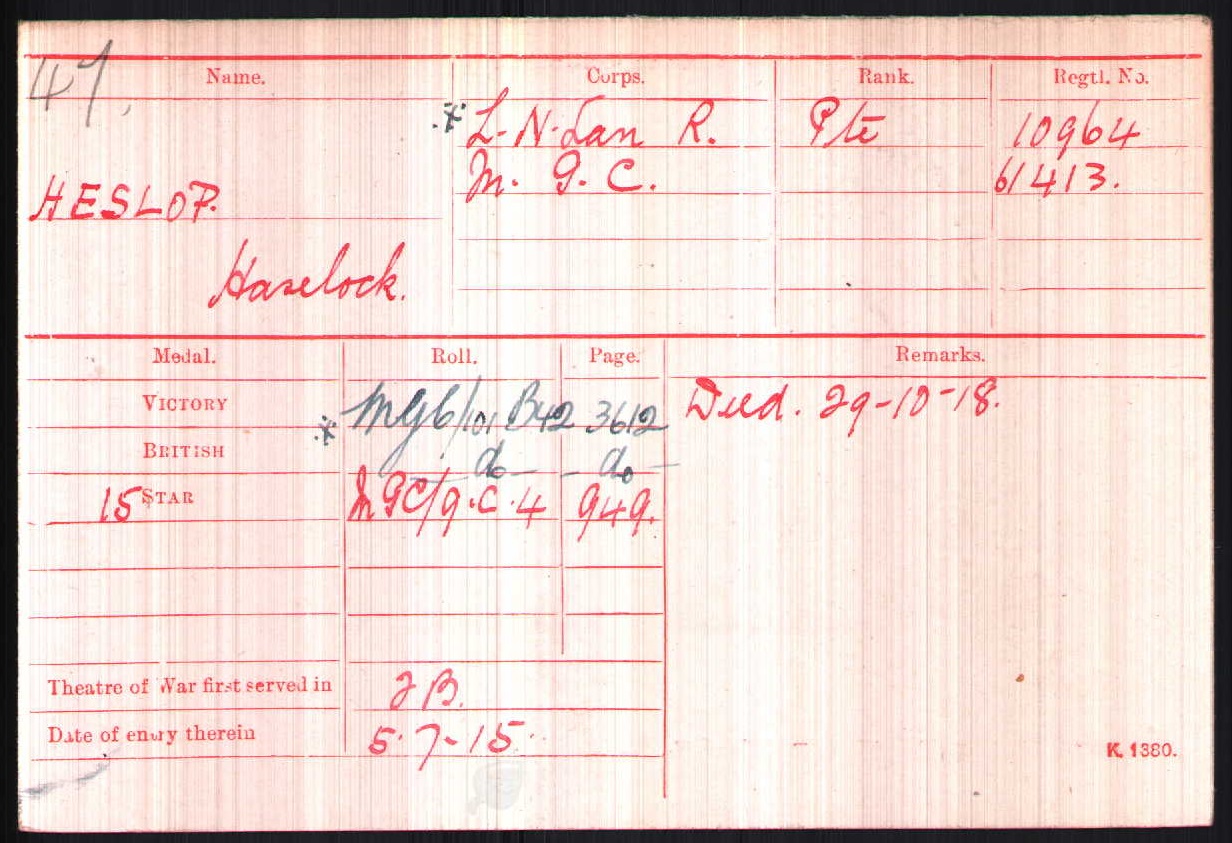 47.
Name. Corps. Rank. Regtl. No.
* L. N. Lan R. Pte 10964
M. G. C. 61413.
HESLOP.
Havelock.
Medal. Roll. Page. Remarks.
VICTORY * MGC/101 B42 3612 Died. 29-10-18.
BRITISH — do — — do —
15 STAR MGC/9.C.4 949.
Theatre of War first served in 2B.
Date of entry therein 5.7-15.
K. 1380.